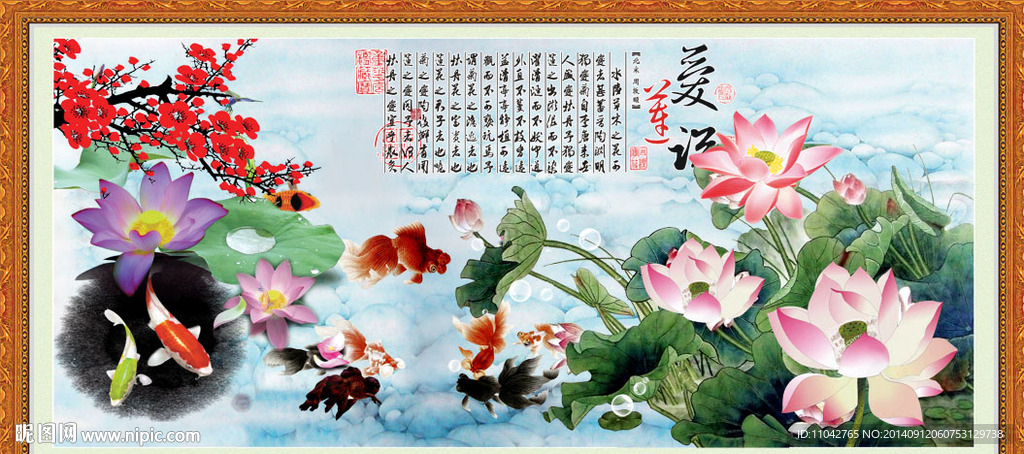 愛
蓮
说
【北宋 周敦頤】
水陸草木之花可
愛者甚蕃晋陶淵明
獨愛菊自李唐来世
人盛愛牡丹予獨愛
蓮之出淤泥而不染
濯清漣而不妖中通
外直不蔓不枝香遠
益清亭亭静植可遠
觀而不可褻玩焉予
謂菊花之隱逸者也
牡丹花之富貴者也
蓮花之君子者也噫
菊之愛陶後鮮有聞
蓮之愛同予者何人
牡丹之愛宜乎衆矣
昵图网 www.nipic.com
ID:11042765 NO:20140912060753129738